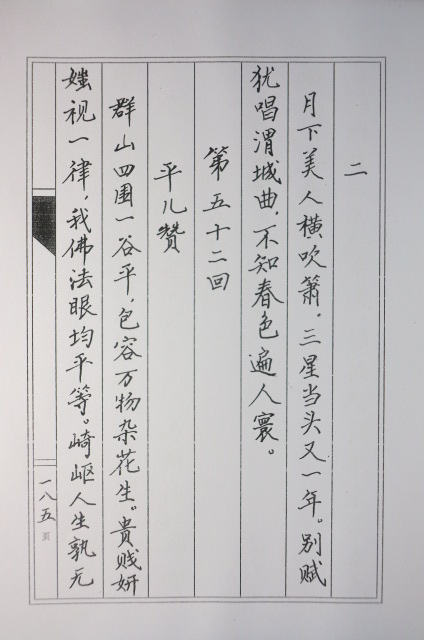 二
月下美人横吹箫。三星当头又一年。别赋
犹唱渭城曲，不知春色遍人寰。
第五十二回
平儿赞
群山四围一谷平，包容万物杂花生。贵贱妍
媸视一律，我佛法眼均平等。崎岖人生孰无
一八五
页